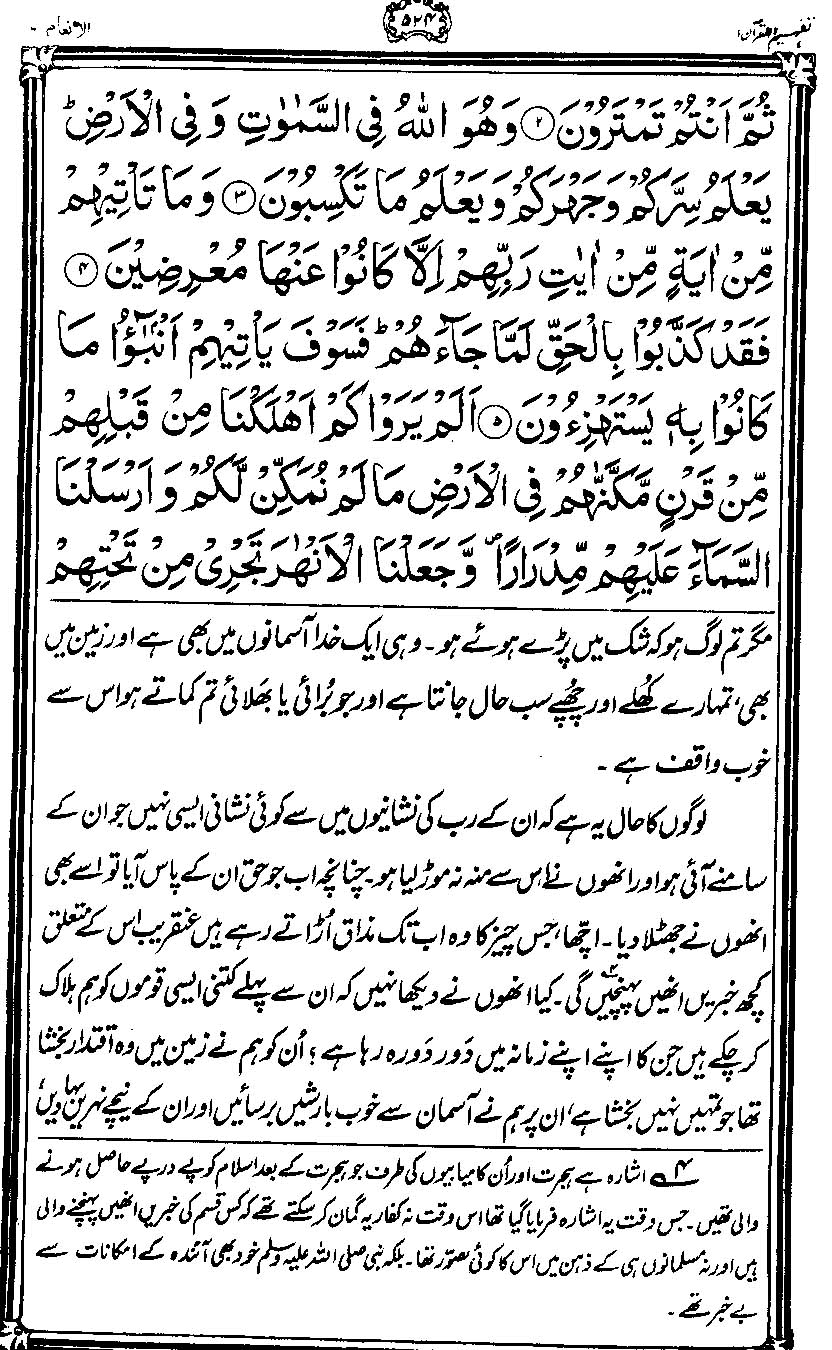 تفہیم القرآن ۱
۵۲۴
الانعام ۶
ثُمَّ اَنْتُمْ تَمْتَرُوْنَ ﴿۲﴾ وَهُوَ اللّٰهُ فِى السَّمٰوٰتِ وَ فِى الْاَرْضِ ؕ
يَعْلَمُ سِرَّكُمْ وَ جَهْرَكُمْ وَ يَعْلَمُ مَا تَكْسِبُوْنَ ﴿۳﴾ وَ مَا تَاْتِيْهِمْ
مِّنْ اٰيَةٍ مِّنْ اٰيٰتِ رَبِّهِمْ اِلَّا كَانُوْا عَنْهَا مُعْرِضِيْنَ ﴿۴﴾
فَقَدْ كَذَّبُوْا بِالْحَقِّ لَمَّا جَآءَهُمْ ؕ فَسَوْفَ يَاْتِيْهِمْ اَنْۢبٰٓؤُا مَا
كَانُوْا بِهٖ يَسْتَهْزِءُوْنَ ﴿۵﴾ اَلَمْ يَرَوْا كَمْ اَهْلَكْنَا مِنْ قَبْلِهِمْ
مِّنْ قَرْنٍ مَّكَّنّٰهُمْ فِى الْاَرْضِ مَا لَمْ نُمَكِّنْ لَّكُمْ وَ اَرْسَلْنَا
السَّمَآءَ عَلَيْهِمْ مِّدْرَارًا ۪ وَّ جَعَلْنَا الْاَنْهٰرَ تَجْرِىْ مِنْ تَحْتِهِمْ
مگر تم لوگ ہو کہ شک میں پڑے ہوئے ہو۔ وہی ایک خدا آسمانوں میں بھی ہے اور زمین میں
بھی، تمہارے کھُلے اور چھُپے سب حال جانتا ہے اور جو بُرائی یا بھَلائی تم کماتے ہو اس سے
خوب واقف ہے۔
لوگوں کا حال یہ ہے کہ ان کے رب کی نشانیوں میں سے کوئی نشانی ایسی نہیں جو ان کے
سامنے آئی ہو اور انھوں نے اس سے منہ نہ موڑ لیا ہو۔ چنانچہ اب جو حق ان کے پاس آیا تو اسے بھی
انھوں نے جھٹلا دیا۔ اچھا، جس چیز کا وہ اب تک مذاق اُڑاتے رہے ہیں عنقریب اس کے متعلق
کچھ خبریں انھیں پہنچیں گی۔ کیا انھوں نے دیکھا نہیں کہ ان سے پہلے کتنی ایسی قوموں کو ہم ہلاک
کر چکے ہیں جن کا اپنے اپنے زمانہ میں دَور دَورہ رہا ہے؟ اُن کو ہم نے زمین میں وہ اقتدار بخشا
تھا جو تمہیں نہیں بخشا ہے، ان پر ہم نے آسمان سے خوب بارشیں برسائیں اور ان کے نیچے نہریں بہا دیں،
۴؎ اشارہ ہے ہجرت اور اُن کامیابیوں کی طرف جو ہجرت کے بعد اسلام کو پے در پے حاصل ہونے
والی تھیں۔ جس وقت یہ اشارہ فرمایا گیا تھا اس وقت نہ کفار یہ گمان کر سکتے تھے کہ کس قسم کی خبریں انھیں پہنچنے والی
ہیں اور نہ مسلمانوں ہی کے ذہن میں اس کا کوئی تصور تھا۔ بلکہ نبی صلی اللہ علیہ وسلم خود بھی آئندہ کے امکانات سے
بے خبر تھے۔